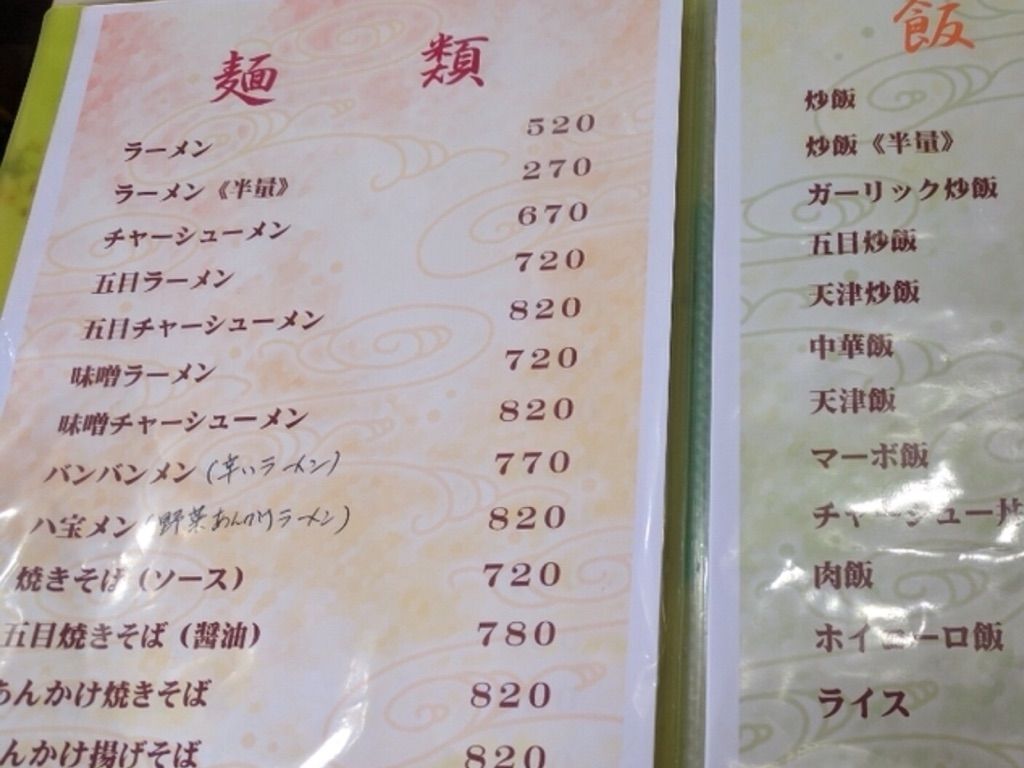 麺 類
ラーメン 520
ラーメン《半量》 270
チャーシューメン 670
五目ラーメン 720
五目チャーシューメン 820
味噌ラーメン 720
味噌チャーシューメン 820
バンバンメン(辛いラーメン) 770
八宝メン(野菜あんかけラーメン) 820
焼きそば(ソース) 720
五目焼きそば(醤油) 780
あんかけ焼きそば 820
んかけ揚げそば 820
飯
炒飯
炒飯《半量》
ガーリック炒飯
五目炒飯
天津炒飯
中華飯
天津飯
マーボ飯
チャーシュー丼
肉飯
ホイコーロ飯
ライス